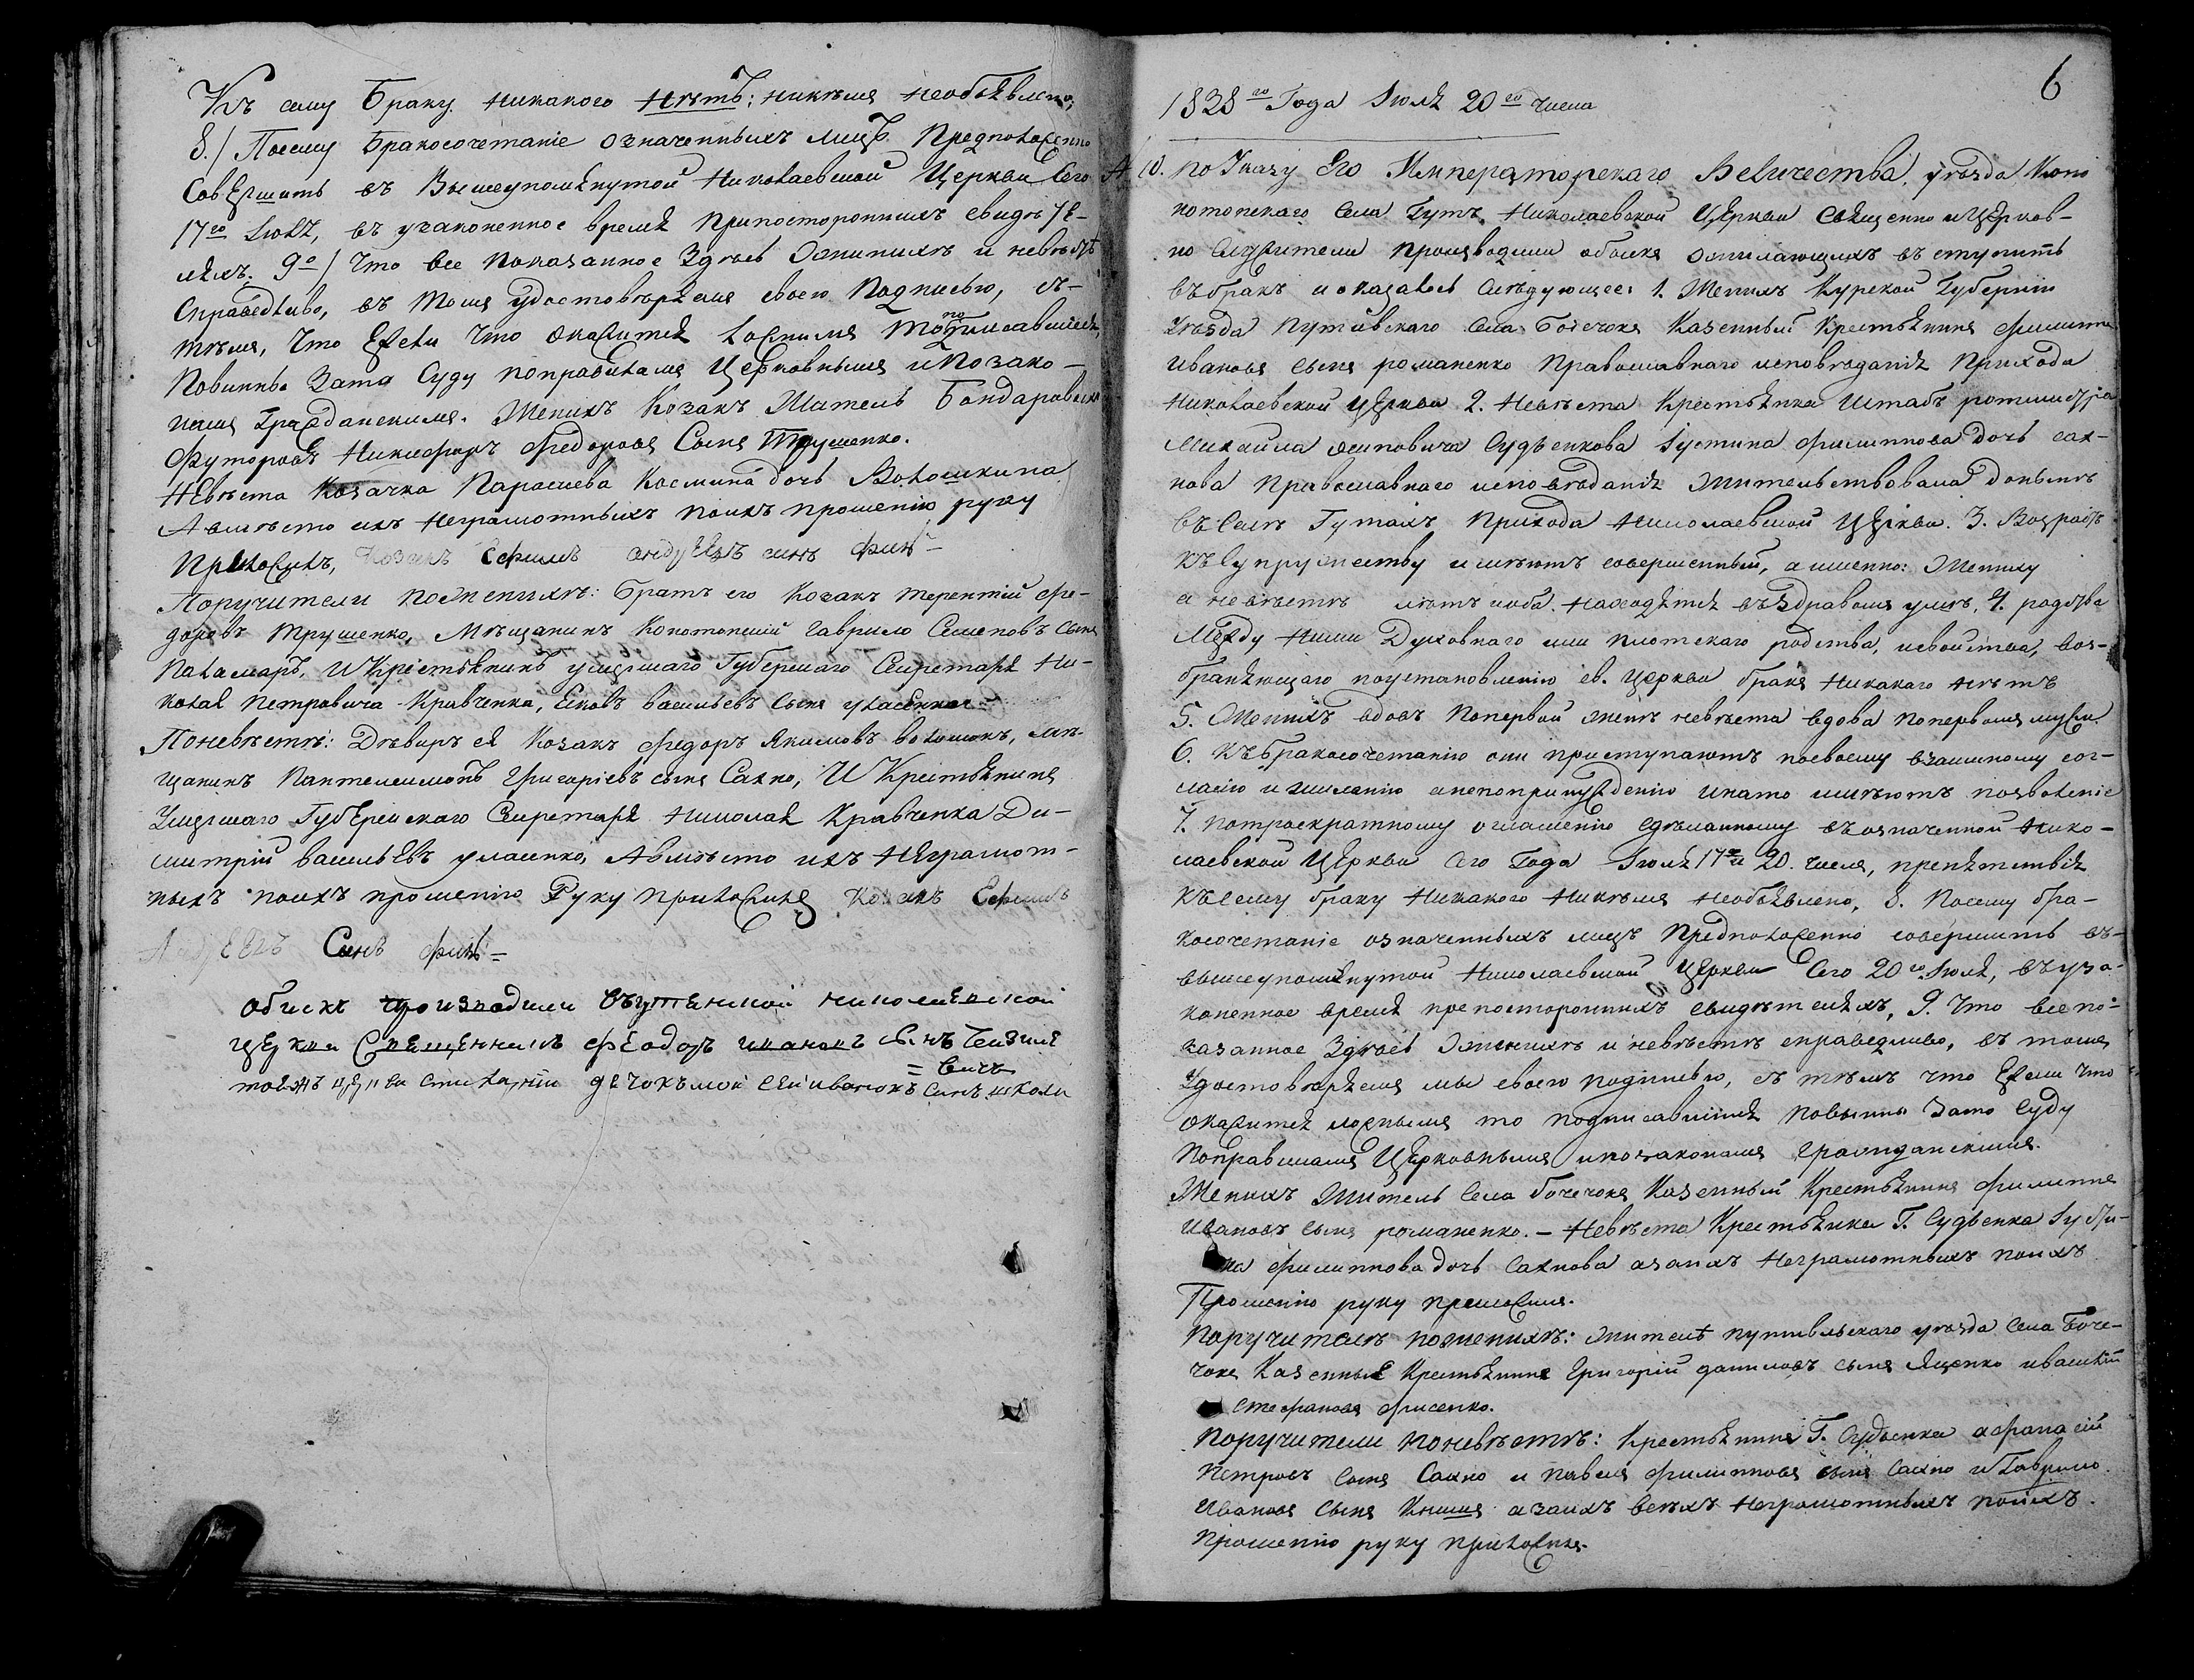 Къ сему Браку никакого нѣтъ; никѣмъ необъявлено;
8./ Посему Бракосочетаніе означенныхъ лицъ Предположенно
Совершить въ Вышеупомянутой Николаевской Церкви Сего
17го Іюля, въ узаконенное время припостороннихъ свидѣте-
ляхъ. 9е/ Что все показанное здѣсь ожинихѣ и невѣстѣ
Справедливо, въ томъ удостовѣряемъ своею подписью, съ-
тѣмъ, что Ежели что окажится ложнымъ то подписавшіеся,
Повинны Зато Суду поправиламъ Церковнымъ ипозако-
намъ Гражданскимъ. Женихъ Козакъ Жатель Бондаровскихъ
Футоровъ Никифоръ Федоровъ Сынъ Трушенко.
Невѣста Козачка Параскева Космина дочь Волошкина
Авмѣсто ихъ неграмотныхъ поихъ прошенію руку
Приложилъ, Козакъ Ефимъ синъ
Поручители пожинихѣ: Братъ его Козакъ Терентій Фе-
доровъ Трушенко, Мѣщанинъ Конотопскій Гаврило Семеновъ Сынъ
Паламаръ, И Крестьянинъ умершаго Губернскаго Секретаря Ни-
колая Петровича Кравченка, Яковъ васильевъ Сынъ
Поневѣстѣ: Дѣверъ ея Козакъ Федоръ Якимовъ волошокъ, мѣ-
щанинъ Пантелеимонъ Григоріевъ сынъ Сахно, И Крестьянинъ
Умершаго Губернскаго Секретаря Николая Кравченка Ди-
митрій васильевъ уласенко, Авмѣсто ихъ неграмот-
ныхъ поихъ прошенію Руку приложилъ Козакъ Ефимъ
Синъ
обискъ производили въгутянской николаевской
церкви Священникъ Феодоръ ивановъ с.нъ
вичъ
тоежъ церкви дечокъмой сеи ивановъ синъ школи
6
1838го Года Іюля 20го числа
№ 10. по Указу Его Императорскаго Величества, уѣзда Коно
топскаго Села Гутъ Николаевской Церкви Священно и Церков-
но служители производили обыскъ ожилающихъ въступить
въбракъ иоказалось слѣдующее: 1. Женихъ Курской Губерніи
Уѣзда Путивскаго Села Бочечокъ Казенный Крестьянинъ филиппъ
ивановъ сынъ романенко Православнаго исповѣданія Прихода
Николаевской Церкви 2. Невѣста Крестьянка Штабъ ротмистра
Михайла осиповича Судьенкова Іустина филиппова дочь сах-
нова Православнаго исповѣданія жительствовала донынѣ
въСелѣ Гутахъ Прихода Николаевской Церкви. 3. Возрастъ
къСупружеству имѣютъ совершенный, аименно: жениху
а невѣстѣ лѣтъ иоба находятся въздравомъ умѣ, 4. родства
Между ними Духовнаго или плотскаго родства, исвойства, воз-
браняющаго поустановленію св. Церкви брака никакаго нѣтъ
5. Женихъ вдовъ поПервой женѣ невѣста вдова попервомъмужи
6. Къбракосочетанію они приступаютъ посвоему взаимному сог-
ласію ижиланію анепопринужденію инато имѣютъ позволеніе
7. Потроекратному оглашенію сдѣланному въозначенной Нико-
лаевской Церкви Сего Года Іюля 17 и 20. числа, препятствія
къСему браку никакого никѣмъ необъявлено, 8. Посему бра-
косочетаніе означенныхъ лицъ предположенно совершить въ-
вышеупомянутой Николаевской Церкви Сего 20го Іюля, въуза-
коненное время препостороннихъ свидѣтеляхъ, 9. Что всепо-
казанное Здѣсь Ожинихѣ и невѣстѣ справедливо, въ томъ
Удостовѣряемъ мы своею подписью, съ тѣмъ что Ежели что
окажится ложнымъ то подписавшійся повинны Зато Суду
Поправиламъ Церковнымъ ипозаконамъ гражданскимъ.
Женихъ Житель Села бочечокъ Казенный Крестьянинъ филиппъ
ивановъ сынъ романенко. – Невѣста Крестьянка Г. Судьенка Іусти-
на филиппова дочь Сахнова азаихъ неграмотныхъ поихъ
Прошенію руку приложилъ.
Поручители пожинихѣ: жители путивльскаго уѣзда Села Боче-
чокъ Казенные Крестьянинъ Григорій даниловъ сынъ Яценко ивасилій
стефановъ фисенко.
Поручители поневѣстѣ: Крестьянинъ Г. Судьенка афанасій
Петровъ Сынъ Сахно и павелъ филипповъ сынъ Сахно иГаврило
Ивановъ Сынъ Книшъ азаихъ всѣхъ неграмотныхъ поихъ
прошенію руку приложилъ.